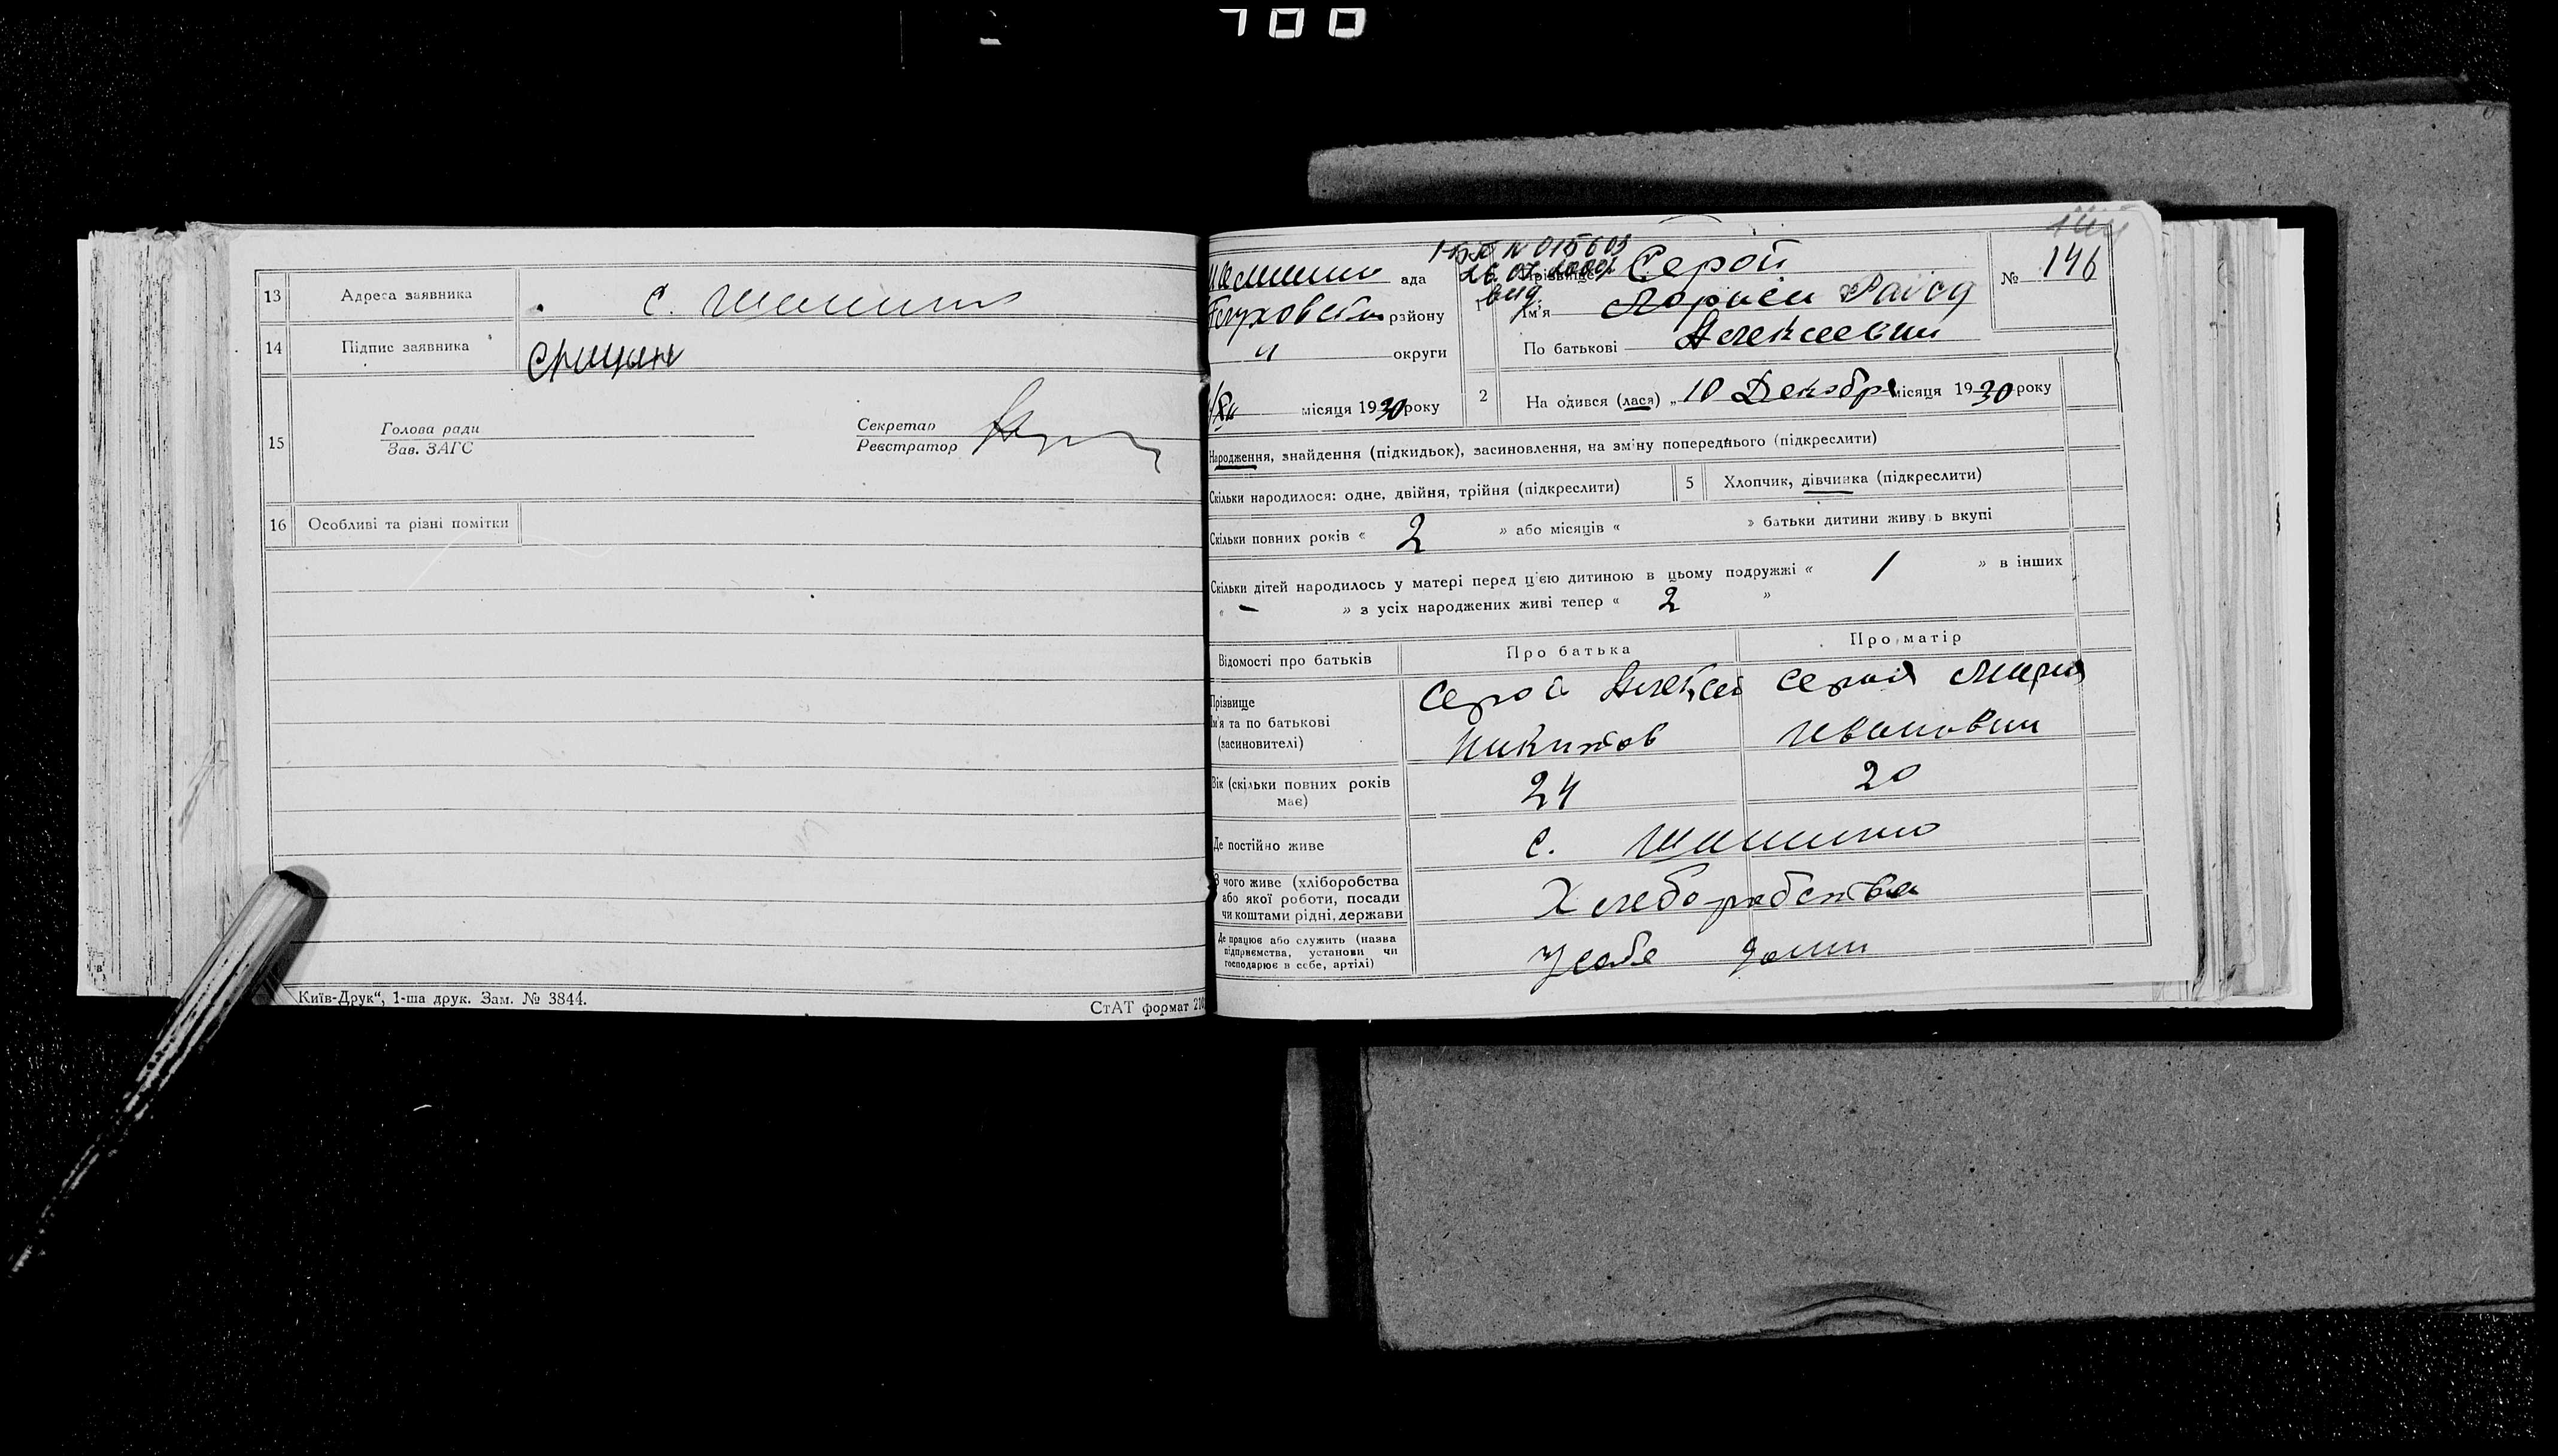 700
13 Адреса заявника с. Шалиги
14 Підпис заявника
15 Голова ради
Зав. ЗАГС
Секретар
Реєстратор
16 Особливі та різні помітки
Київ-Друк“, 1-ша друк. Зам. № 3844.
СтАТ формат 210
1-БП N 015603
ада
району
округи
місяця 1930 року
1 Прізвище Серой
Ім'я Раїса
По батькові Алексеевна
№ 146
2 На одився (лася) „10 Декабря місяця 1930 року
Народження, знайдення (підкидьок), засиновлення, на зміну попереднього (підкреслити)
Скільки народилося: одне, двійня, трійня (підкреслити)
5 Хлопчик, дівчинка (підкреслити)
Скільки повних років « 2 » або місяців « » батьки дитини живуть вкупі
Скільки дітей народилось у матері перед цією дитиною в цьому подружжі « 1 » в інших
« — » з усіх народжених живі тепер « 2 »
Відомості про батьків Про батька Про матір
Прізвище
Ім'я та по батькові
(засиновителі)
Серой Алексей
Никитов
Серая Мария
Ивановн
Вік (скільки повних років
має)
24 20
Де постійно живе с.
З чого живе (хліборобства
або якої роботи, посади
чи коштами рідні, держави
Хлеборобства
Де працює або служить (назва
підприємства, установи чи
господарює в себе, артілі)
У себе дома